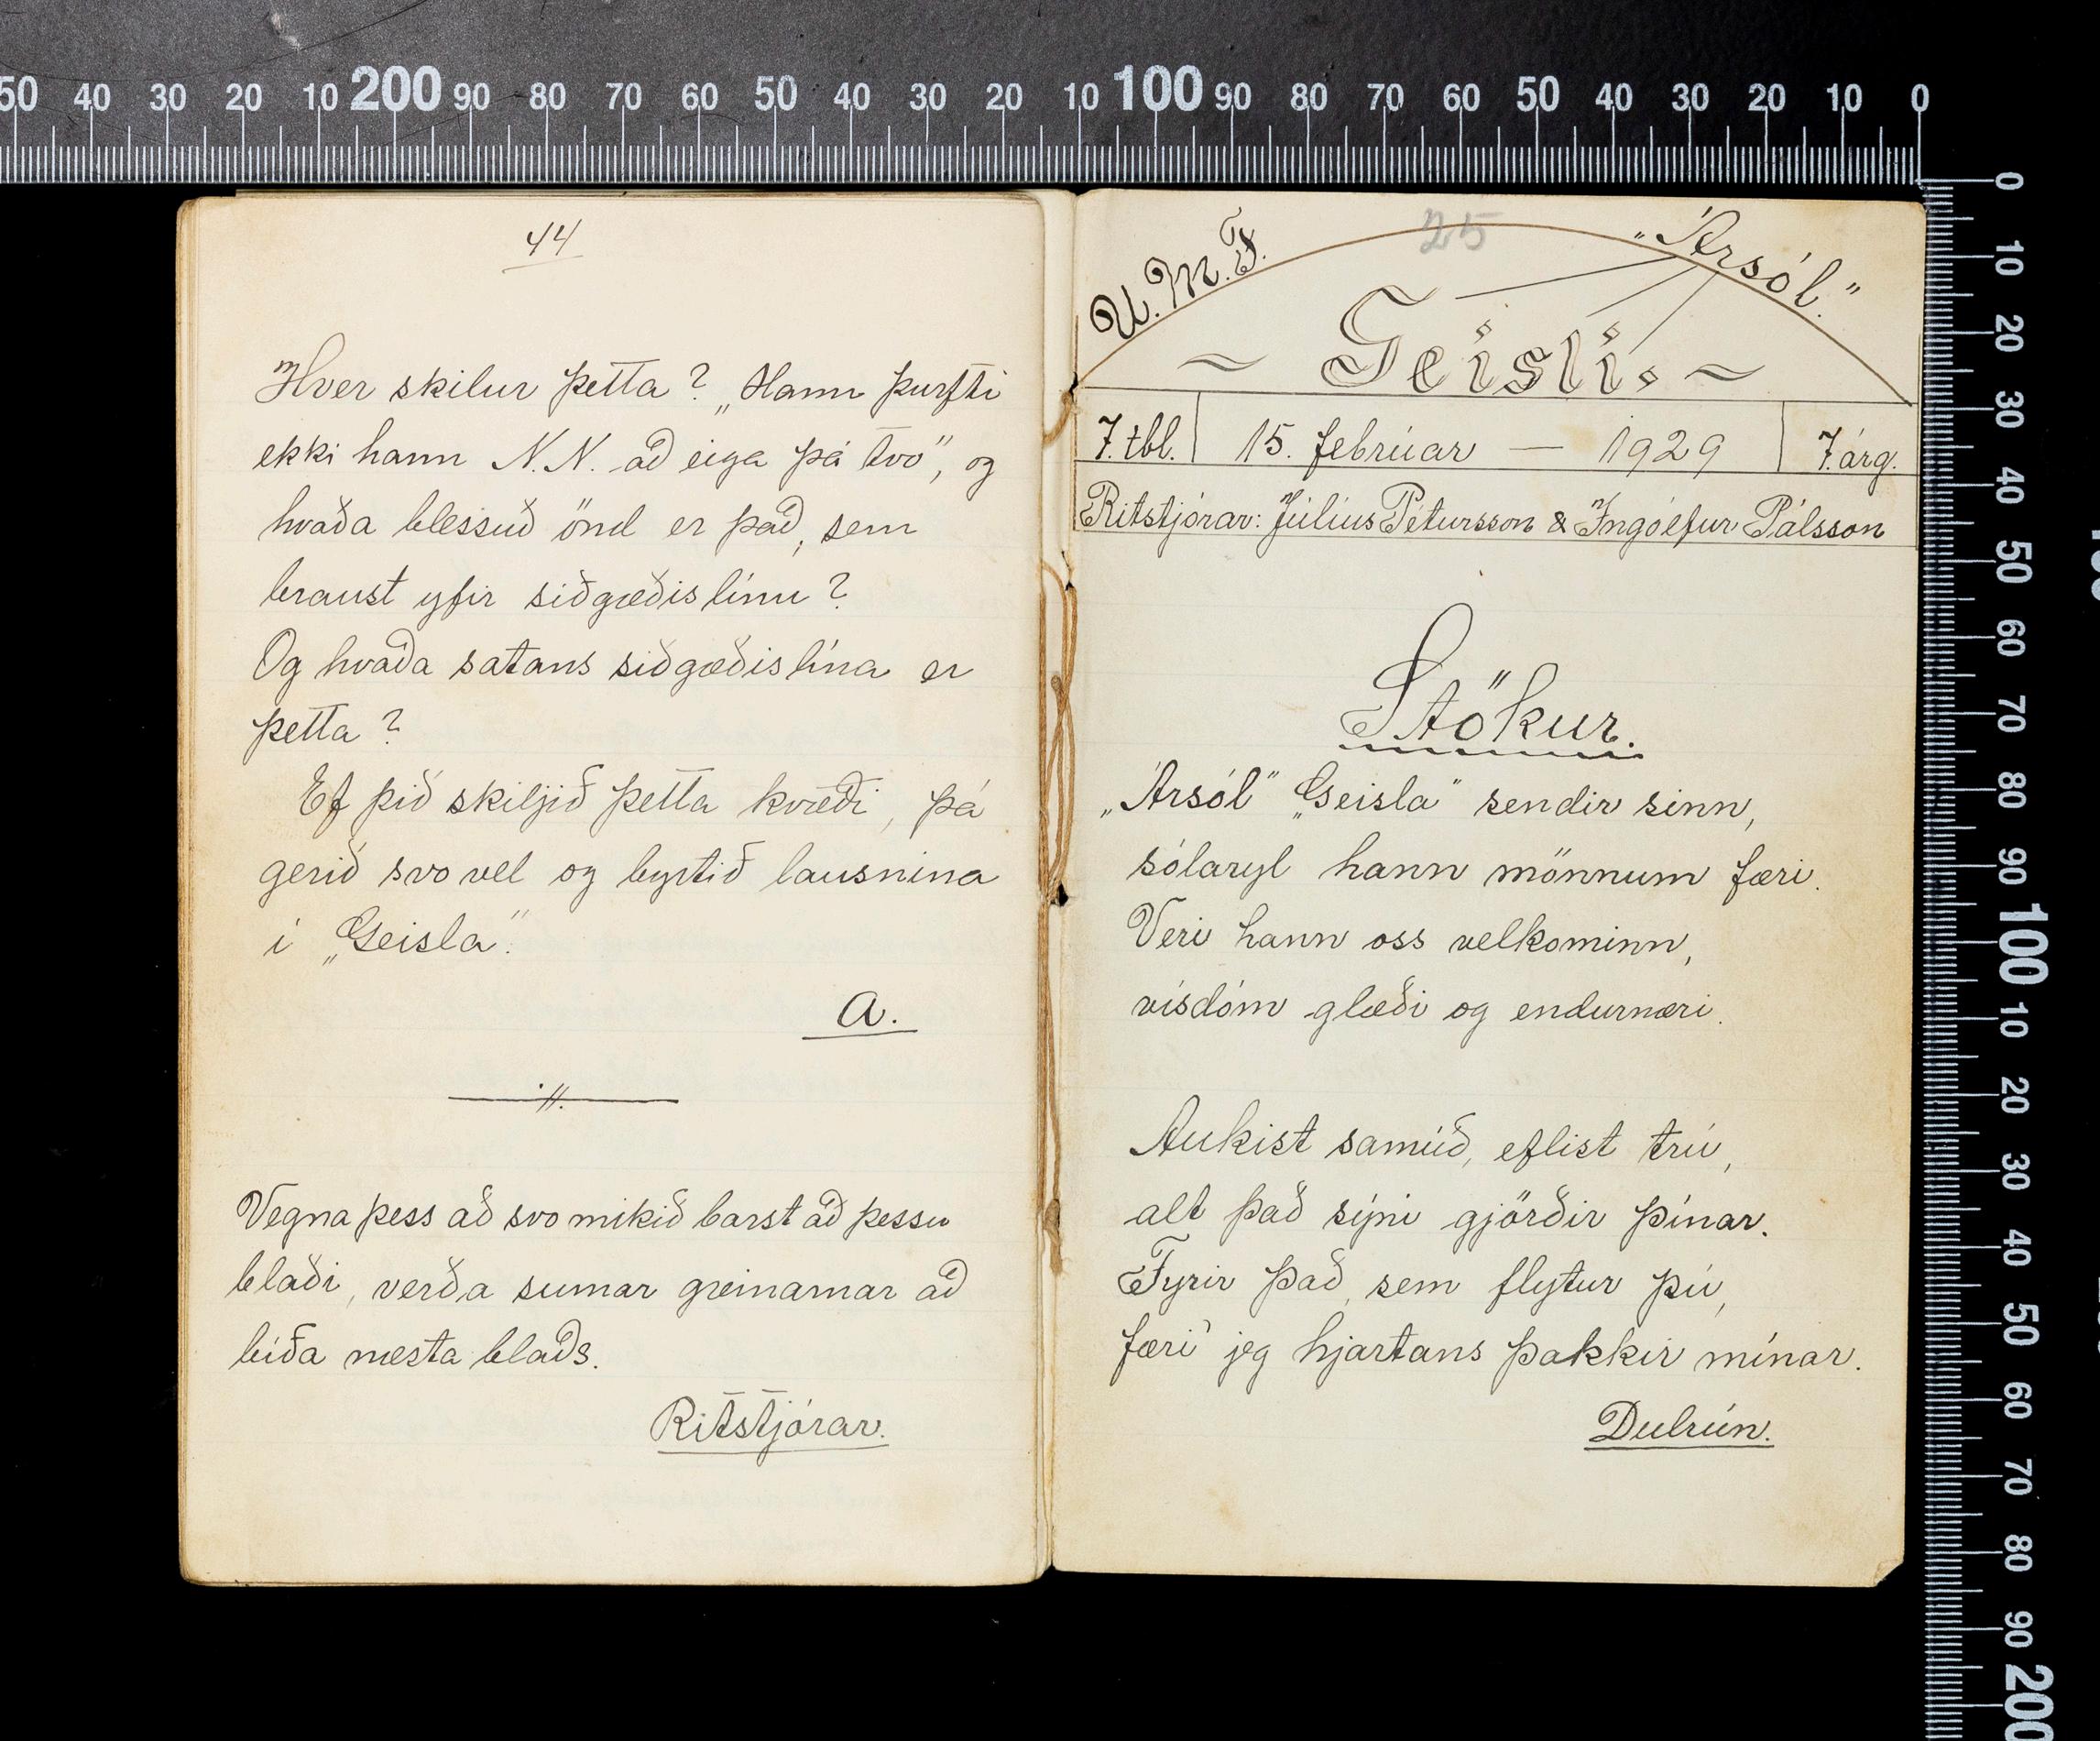 50 40 30 20 10 200 90 80 70 60 50 40 30 20 10 100 90 80 70 60 50 40 30 20 10 0
0 10 20 30 40 50 60 70 80 90 100 10 20 30 40 50 60 70 80 90 200
44
Hver skilur þetta? „Hann þurfti
ekki hann N.N. að eiga þá tvo", og
hvaða blessuð önd er það, sem
braust yfir siðgæðislínu?
Og hvaða satans siðgæðislína er
þetta?
Ef þið skiljið þetta kvæði, þá
gerið svo vel og byrtið lausnina
í „Geisla".
A.
Vegna þess að svo mikið barst að þessu
blaði, verða sumar greinarnar að
bíða næsta blaðs.
Ritstjórar.
25
U.M.F. „Ársól."
~ Geisli. ~
7. tbl. 15. febrúar — 1929 7. árg.
Ritstjórar: Júlíus Pétursson & Ingólfur Pálsson
Stökur.
„Ársól" „Geisla" sendir sinn,
sólaryl hann mönnum færi.
Veri hann oss velkominn,
vísdóm glæði og endurnæri.
Aukist samúð, eflist trú,
alt það sýni gjörðir þínar.
Fyrir það, sem flytur þú,
færi' jeg hjartans þakkir mínar.
Dulrún.